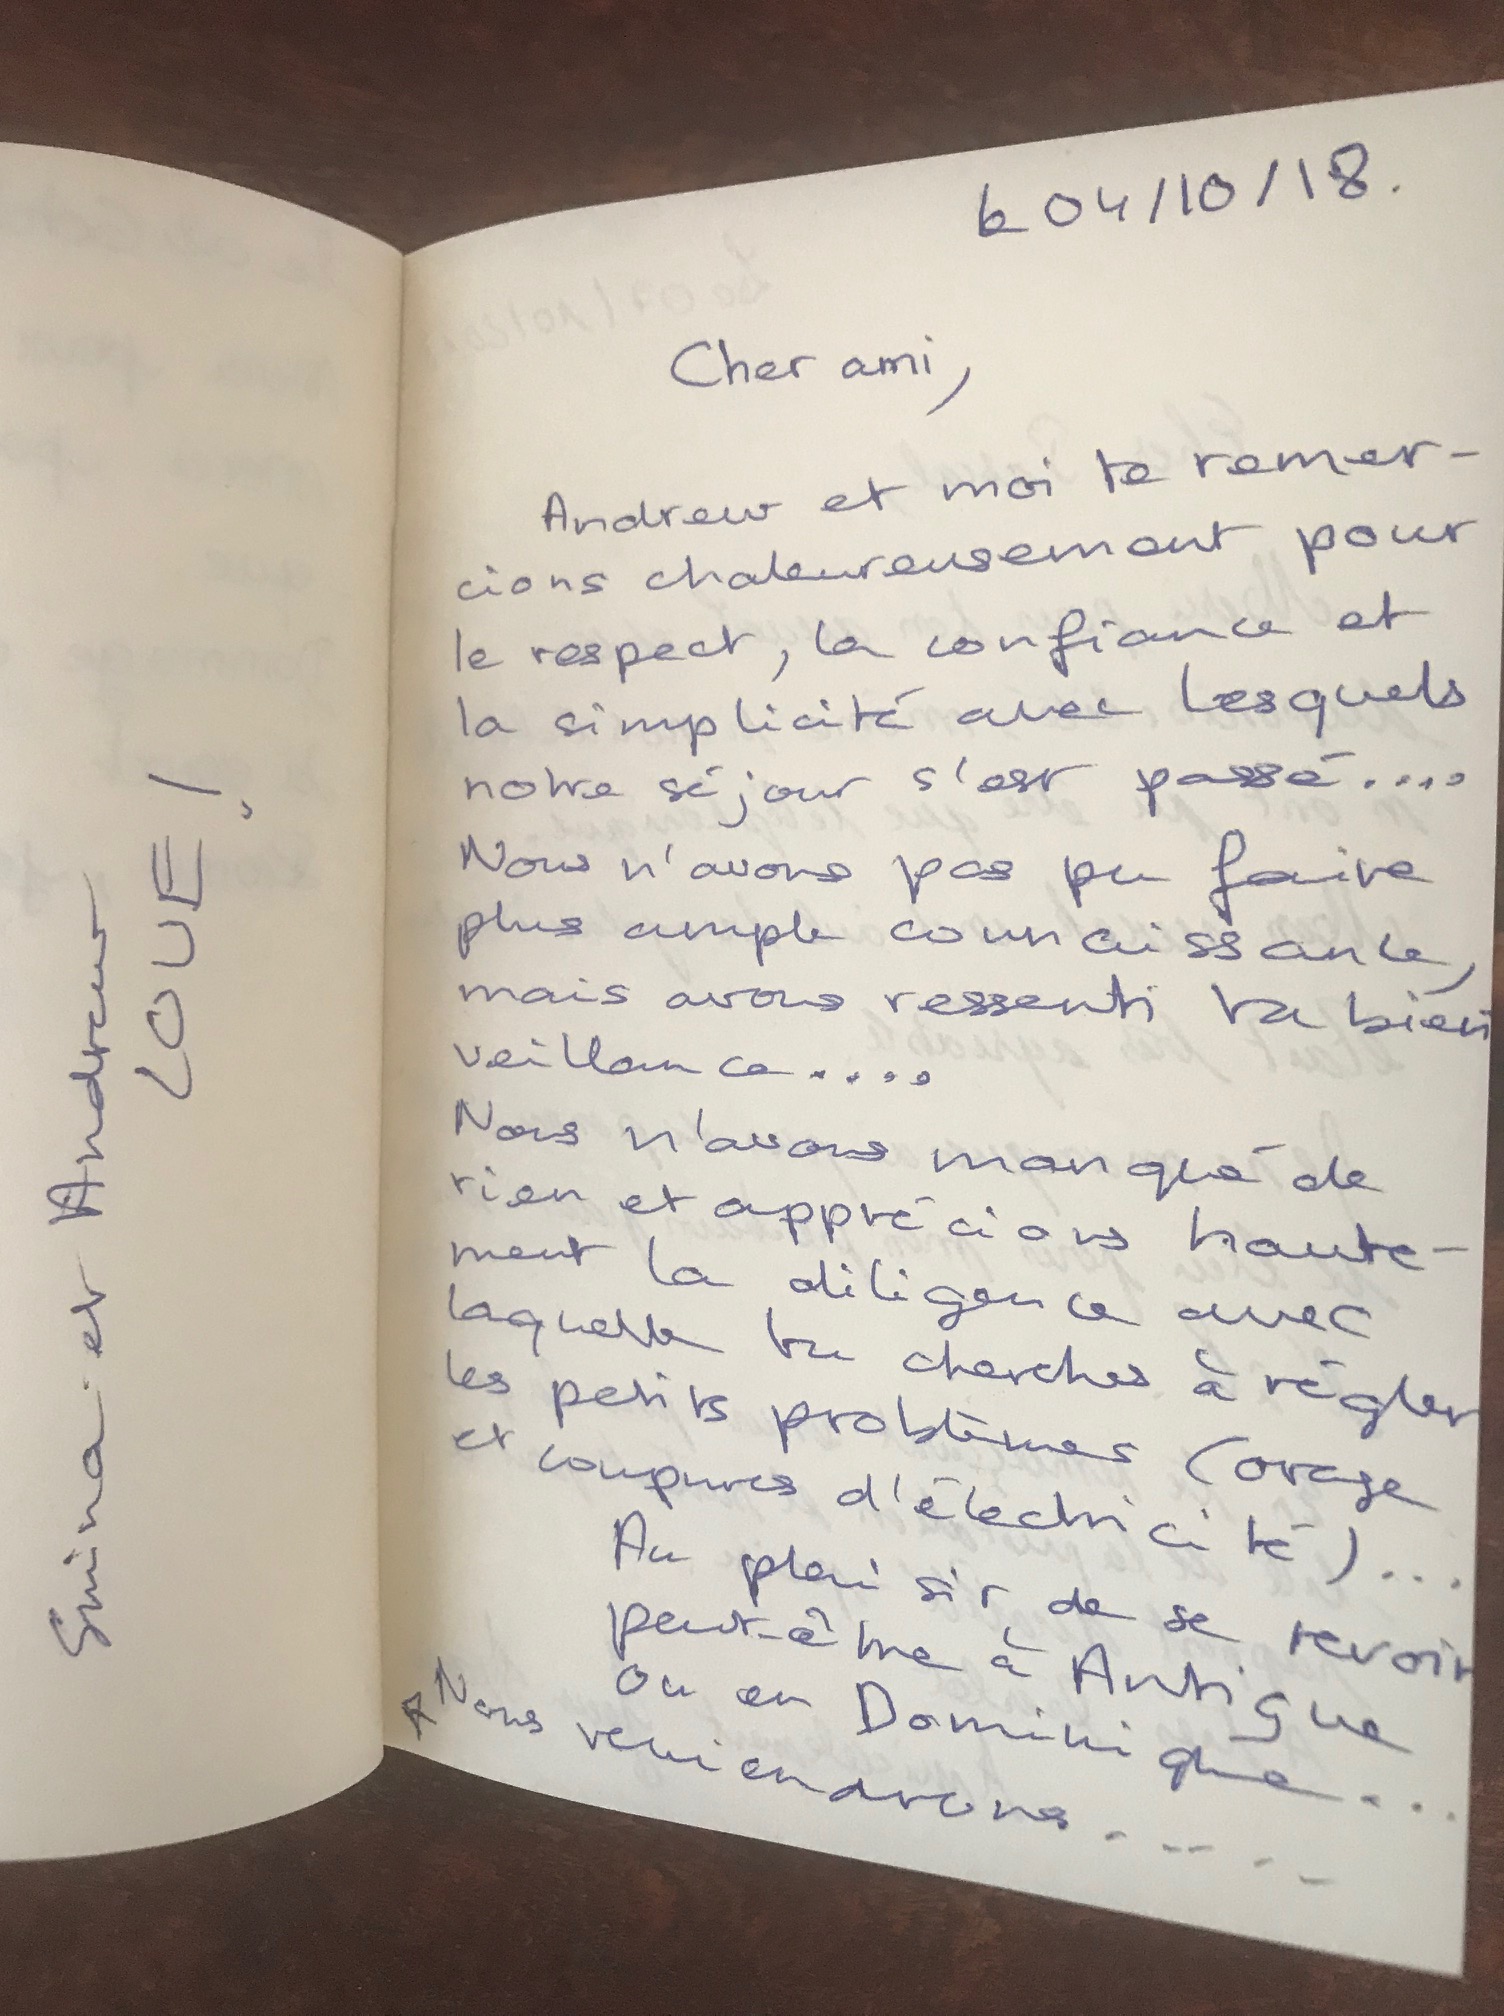 Le 04/10/18.
Cher ami,
Andrew et moi te remer-
cions chaleureusement pour
le respect, la confiance et
la simplicité avec lesquels
notre séjour s'est passé....
Nous n'avons pas pu faire
plus ample connaissance,
mais avons ressenti ta bien
veillance....
Nous n'avons manqué de
rien et apprécions haute-
ment la diligence avec
laquelle tu cherches à régler
les petits problèmes (orage
et coupures d'électricité)...
Au plaisir de se revoir
peut-être à Antigue
ou en Dominique...
Nous reviendrons....
et Andrew
LOVE!